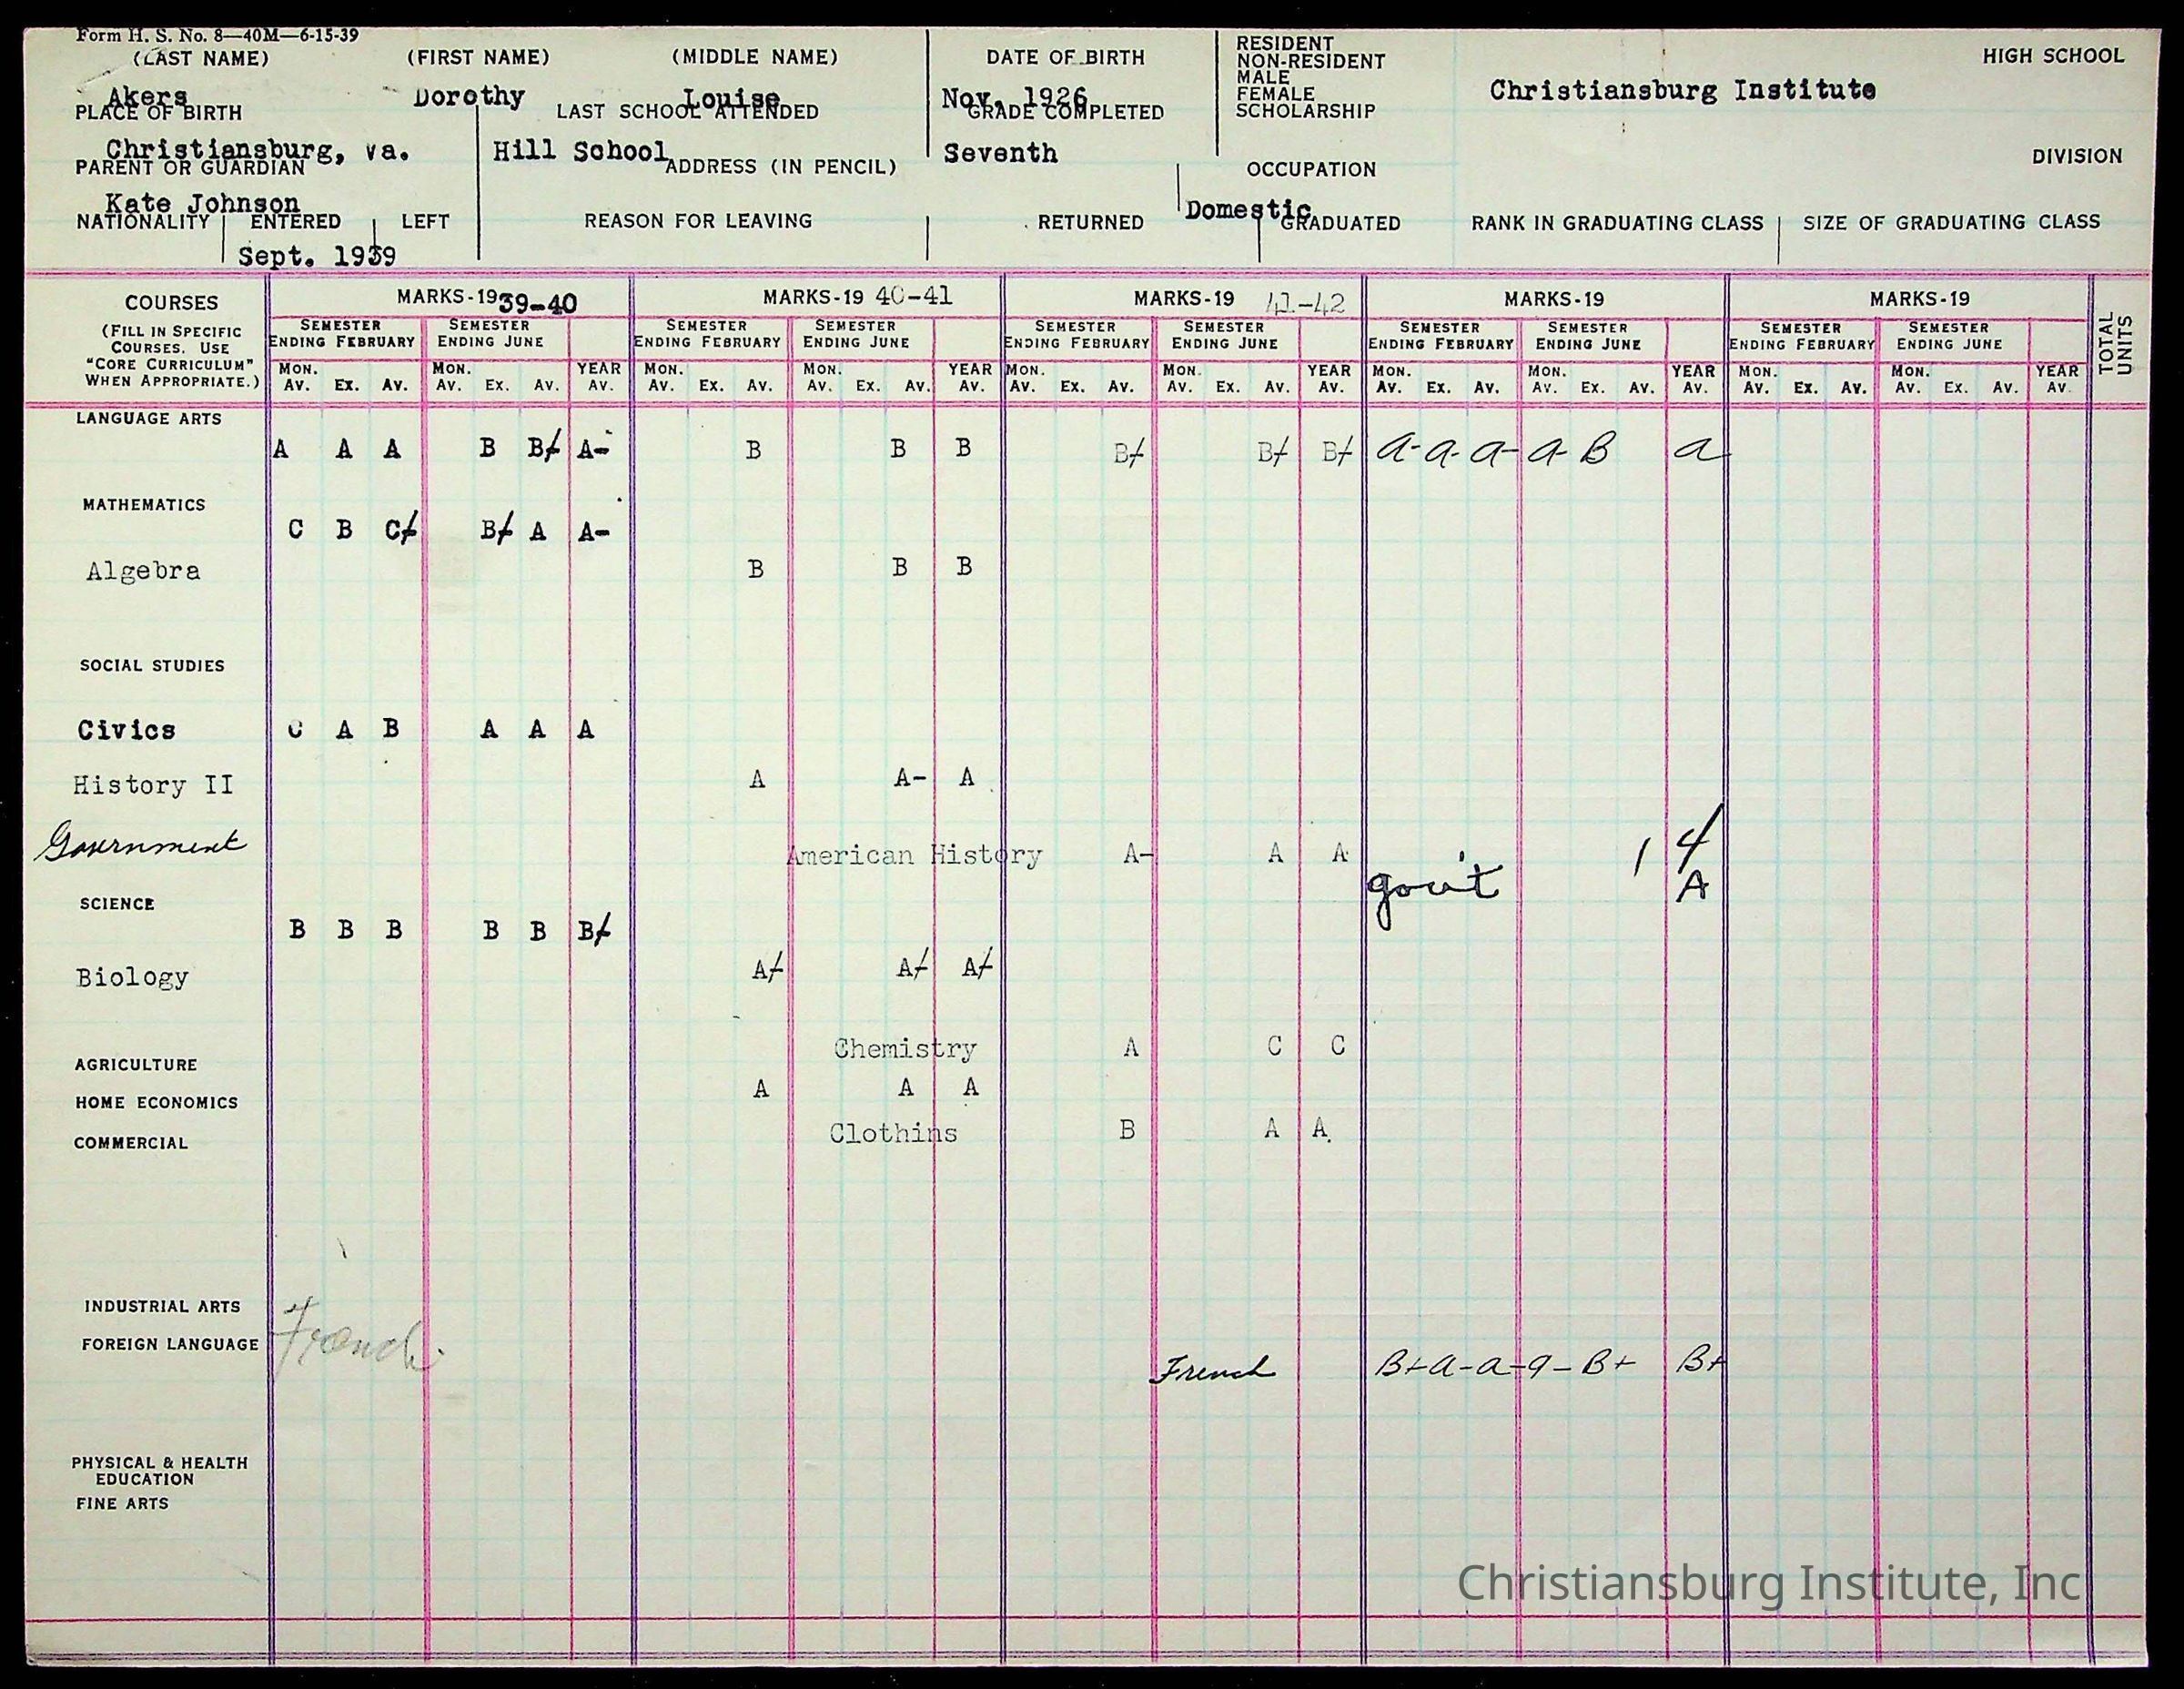 Form H. S. No. 8—40M—6-15-39
(LAST NAME) (FIRST NAME) (MIDDLE NAME) DATE OF BIRTH RESIDENT HIGH SCHOOL
NON-RESIDENT
MALE
Akers Dorothy Louise Nov. 1926 FEMALE Christiansburg Institute
PLACE OF BIRTH LAST SCHOOL ATTENDED GRADE COMPLETED SCHOLARSHIP
Christiansburg, va. Hill School Seventh DIVISION
PARENT OR GUARDIAN ADDRESS (IN PENCIL) OCCUPATION
Kate Johnson Domestic
NATIONALITY ENTERED LEFT REASON FOR LEAVING RETURNED GRADUATED RANK IN GRADUATING CLASS SIZE OF GRADUATING CLASS
Sept. 1939
COURSES MARKS-1939-40 MARKS-19 40-41 MARKS-19 41-42 MARKS-19 MARKS-19 TOTAL UNITS
(FILL IN SPECIFIC SEMESTER SEMESTER SEMESTER SEMESTER SEMESTER SEMESTER SEMESTER SEMESTER SEMESTER SEMESTER
COURSES. USE ENDING FEBRUARY ENDING JUNE ENDING FEBRUARY ENDING JUNE ENDING FEBRUARY ENDING JUNE ENDING FEBRUARY ENDING JUNE ENDING FEBRUARY ENDING JUNE
"CORE CURRICULUM" MON. MON. YEAR MON. MON. YEAR MON. MON. YEAR MON. MON. YEAR MON. MON. YEAR
WHEN APPROPRIATE.) AV. EX. AV. AV. EX. AV. AV. AV. EX. AV. AV. EX. AV. AV. AV. EX. AV. AV. EX. AV. AV. AV. EX. AV. AV. EX. AV. AV. AV. EX. AV. AV. EX. AV. AV.
LANGUAGE ARTS
A A A B B/ A- B B B B/ B/ B/ a- a- a- a- B a
MATHEMATICS
C B C/ B/ A A-
Algebra B B B
SOCIAL STUDIES
Civics C A B A A A
History II A A- A
Government American History A- A A 1 4
gov't A
SCIENCE
B B B B B B/
Biology A/ A/ A/
Chemistry A C C
AGRICULTURE
A A A
HOME ECONOMICS
Clothins B A A
COMMERCIAL
INDUSTRIAL ARTS
French
FOREIGN LANGUAGE
French B+ a- a- a- B+ B+
PHYSICAL & HEALTH
EDUCATION
FINE ARTS
Christiansburg Institute, Inc